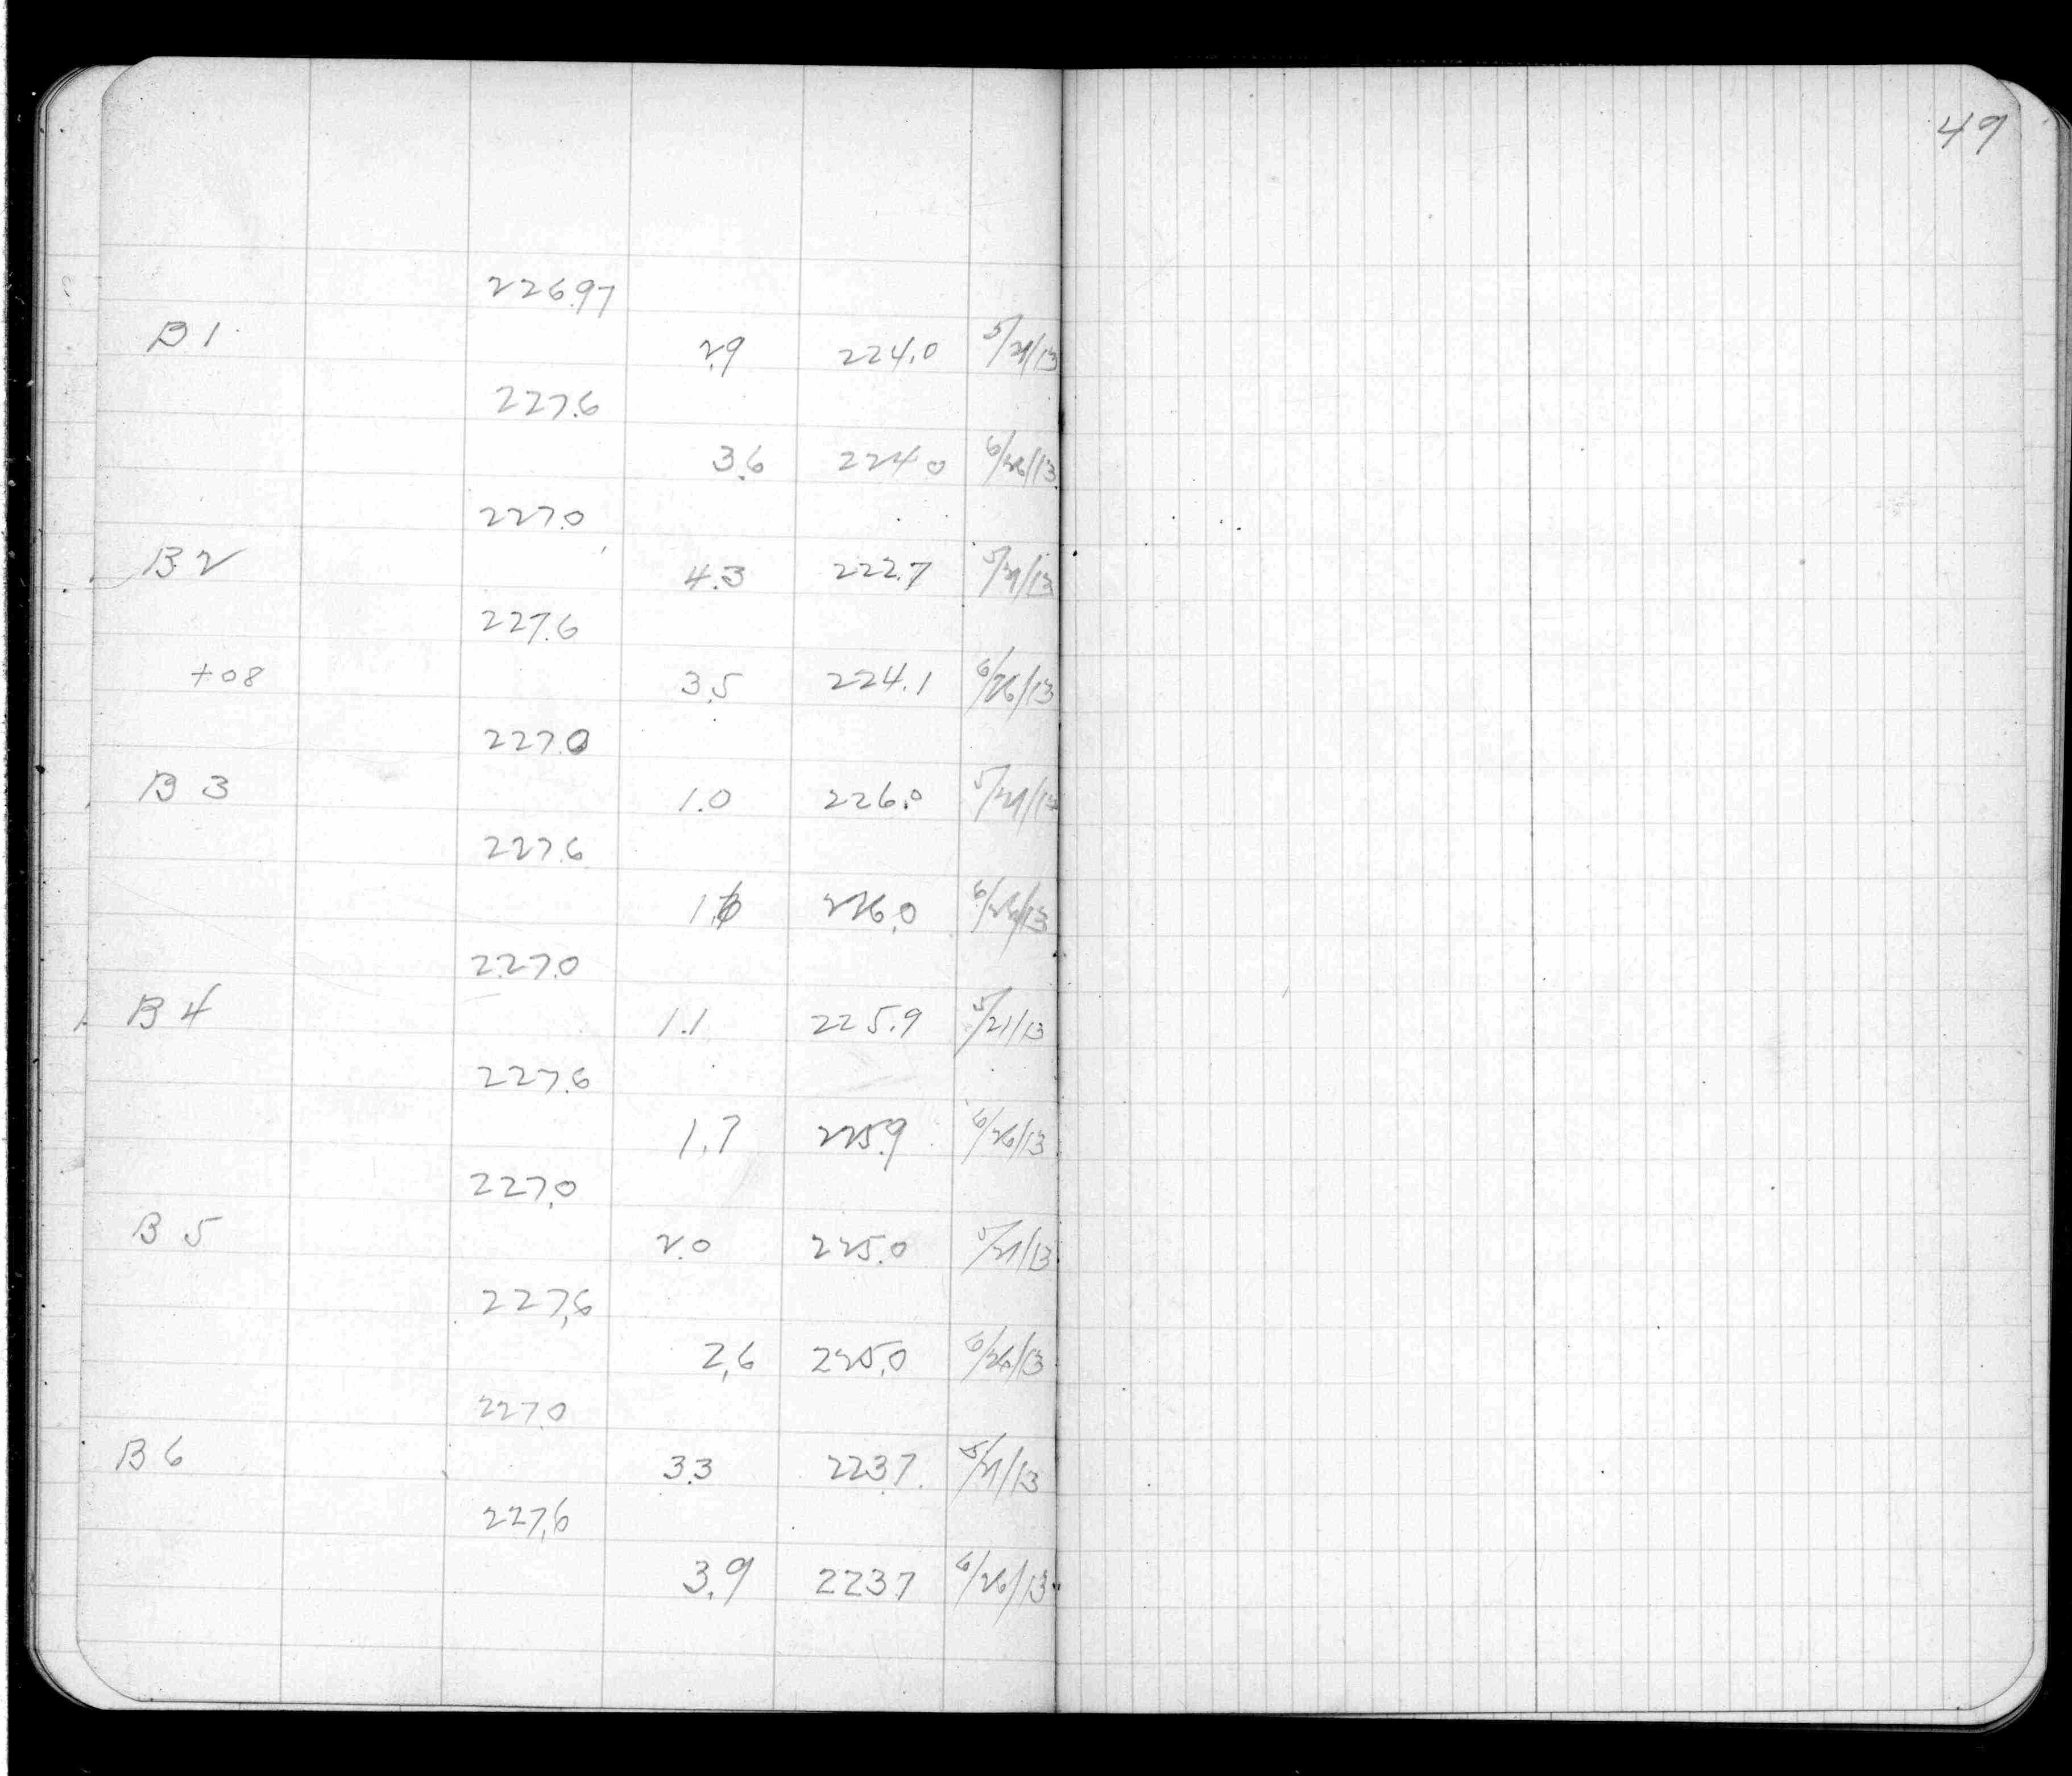 49
226.97
B 1 2.9 224.0 5/21/13
227.6
3.6 224.0 6/26/13
227.0
B 2 4.3 222.7 5/21/13
227.6
+08 3.5 224.1 6/26/13
227.0
B 3 1.0 226.0 5/21/13
227.6
226.0 6/26/13
227.0
B 4 1.1 225.9 5/21/13
227.6
1.7 225.9 6/26/13
227.0
B 5 2.0 225.0 5/21/13
227.6
2.6 225.0 6/26/13
227.0
B 6 3.3 223.7 5/21/13
227.6
3.9 223.7 6/26/13